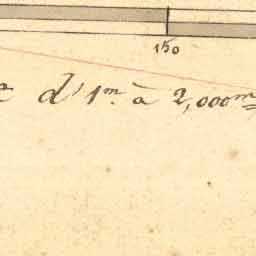 150
d'1m. à 2,000m